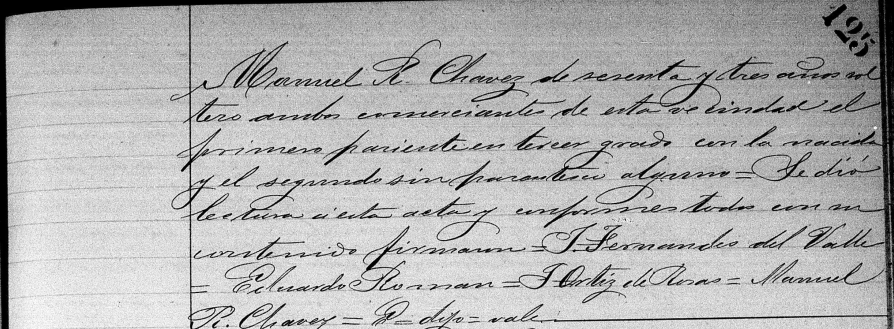 125
Manuel R. Chavez de sesenta y tres años sol
tero ambos comerciantes de esta vecindad el
primero pariente en tercer grado con la nacida
y el segundo sin parentesco alguno = Se dió
lectura á esta acta y conformes todos con su
contenido firmaron = J. Fernandes del Valle
= Eduardo Roman = J Ortiz de Rosas = Manuel
R. Chavez = E = dijo = vale.